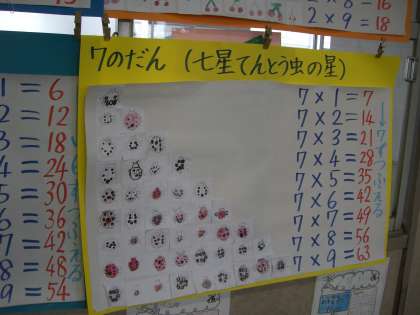 2 × 8 = 16
2 × 9 = 18
7のだん (七星てんとう虫の星)
1 = 6
2 = 12
3 = 18
4 = 24
5 = 30
6 = 36
7 = 42
8 = 48
9 = 54
7 × 1 = 7
7 × 2 = 14
7 × 3 = 21
7 × 4 = 28
7 × 5 = 35
7 × 6 = 42
7 × 7 = 49
7 × 8 = 56
7 × 9 = 63
→7ずつふえる
ずつふえる